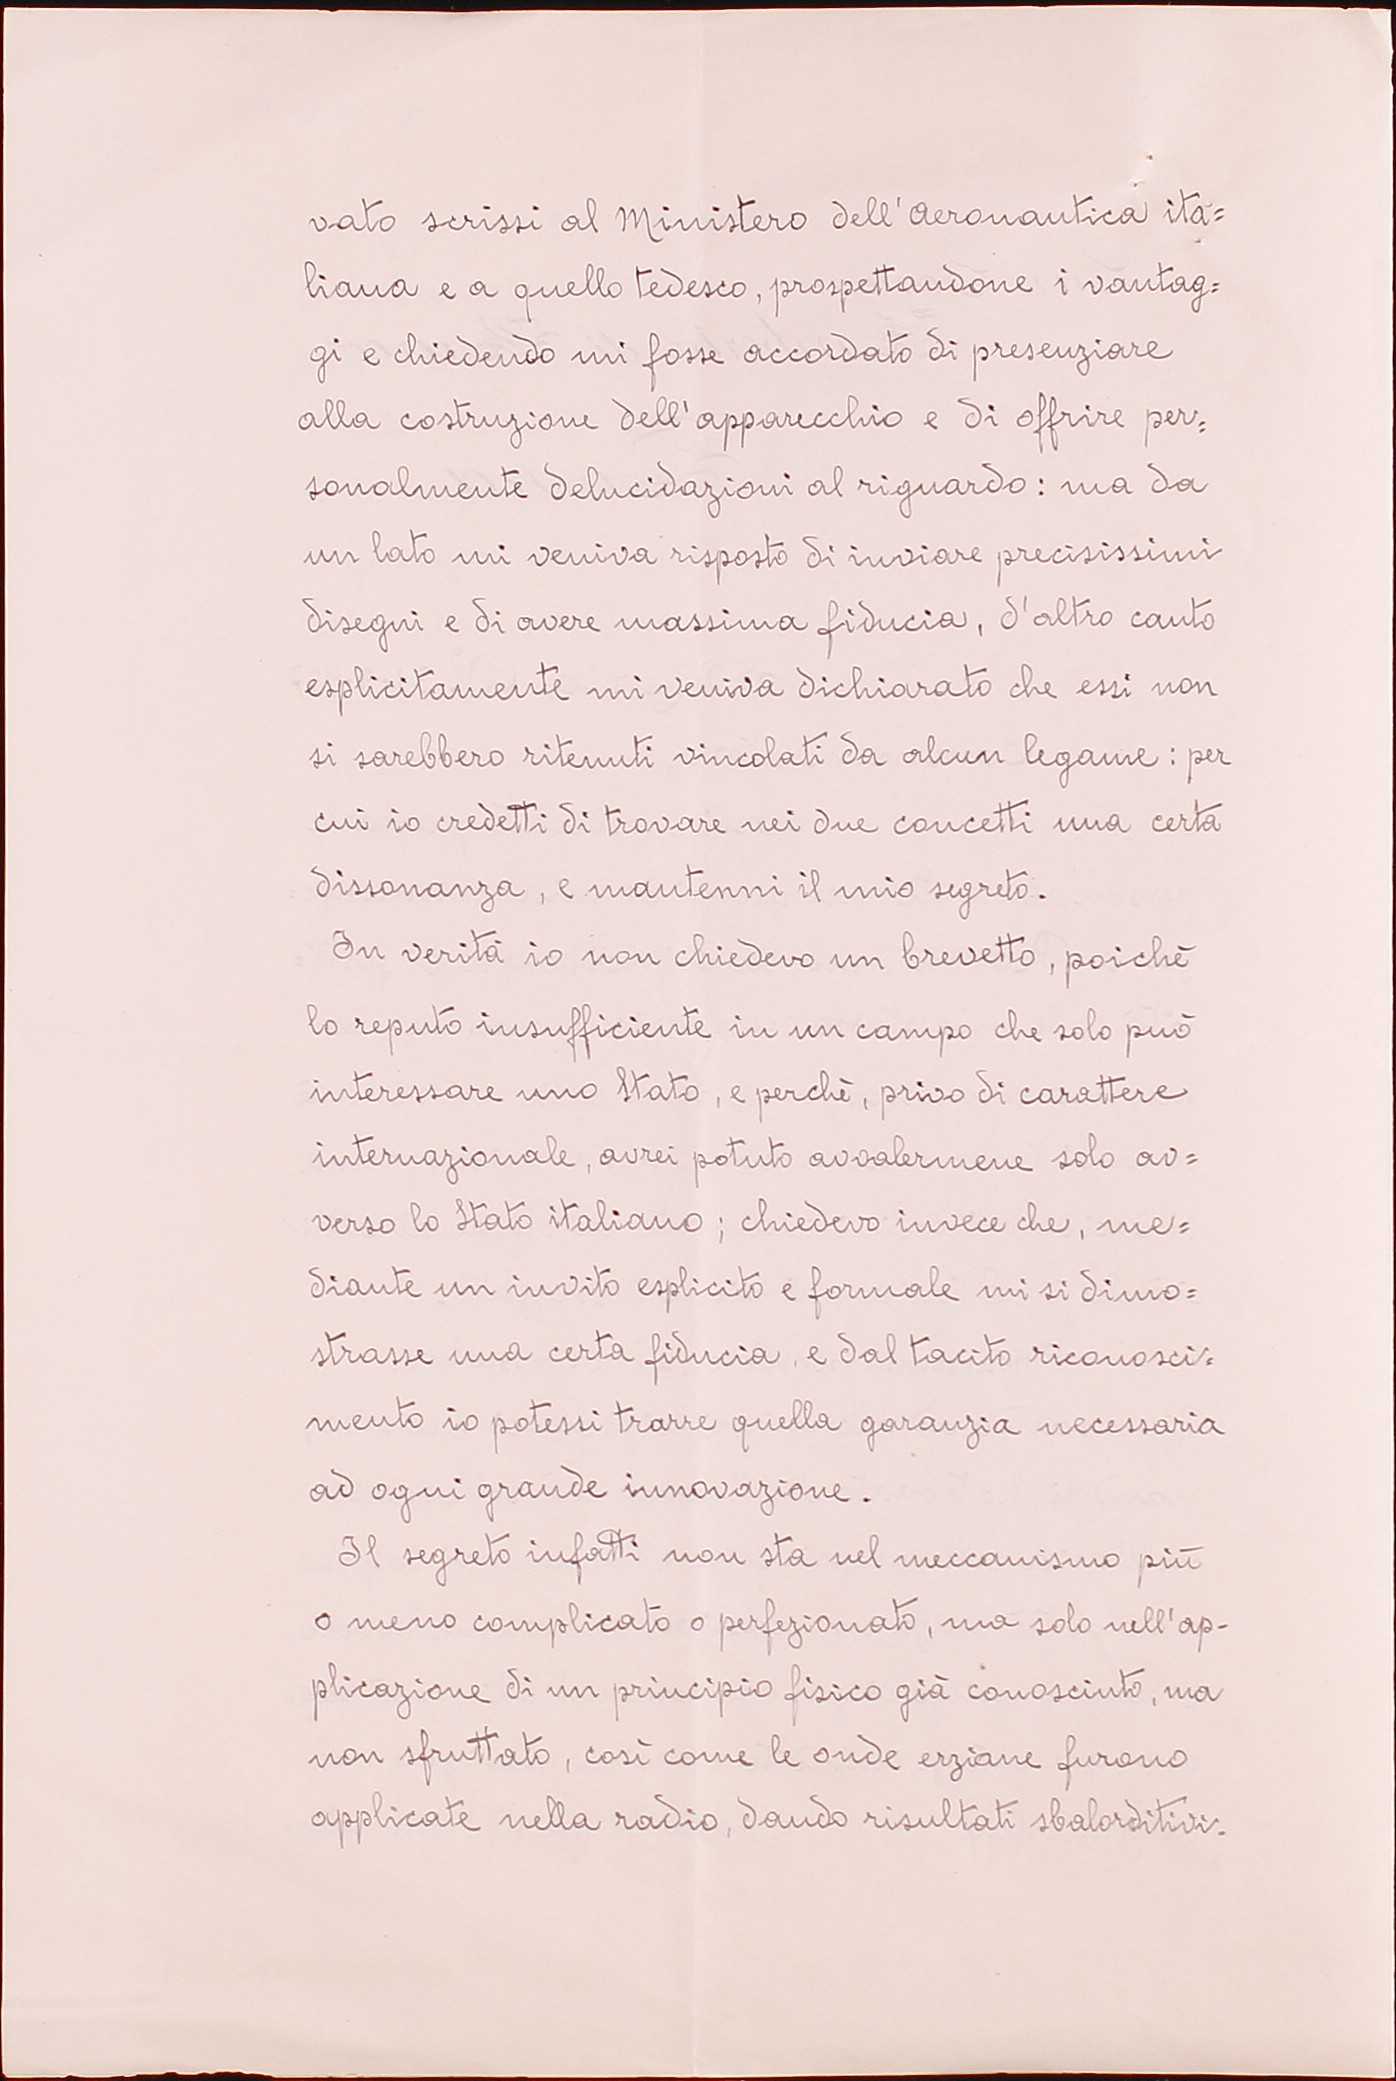 vato scrissi al Ministero dell'Aeronautica ita=
liana e a quello tedesco, prospettandone i vantag=
gi e chiedendo mi fosse accordato di presenziare
alla costruzione dell'apparecchio e di offrire per=
sonalmente delucidazioni al riguardo: ma da
un lato mi veniva risposto di inviare precisissimi
disegni e di avere massima fiducia, d'altro canto
esplicitamente mi veniva dichiarato che essi non
si sarebbero ritenuti vincolati da alcun legame: per
cui io credetti di trovare nei due concetti una certa
dissonanza, e mantenni il mio segreto.
In verità io non chiedevo un brevetto, poichè
lo reputo insufficiente in un campo che solo può
interessare uno Stato, e perchè, privo di carattere
internazionale, avrei potuto avvalermene solo av=
verso lo Stato italiano; chiedevo invece che, me=
diante un invito esplicito e formale mi si dimo=
strasse una certa fiducia, e dal tacito riconosci=
mento io potessi trarre quella garanzia necessaria
ad ogni grande innovazione.
Il segreto infatti non sta nel meccanismo più
o meno complicato o perfezionato, ma solo nell'ap-
plicazione di un principio fisico già conosciuto, ma
non sfruttato, così come le onde erziane furono
applicate nella radio, dando risultati sbalorditivi.